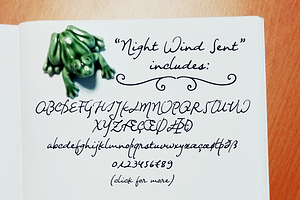 "Night Wind Sent"
includes:
ABCDEFGHIJKLMNOPQRSTUVW
XYZÆŒÐÞ
abcdefghijklmnopqrstuvwxyzæçœðþß
0123456789
(click for more)